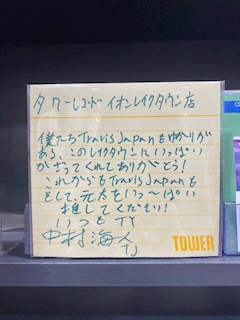 タワーレコード イオンレイクタウン店
僕たちTravis Japanもゆかりが
ある、このレイクタウンにいっぱい
かざってくれてありがとう!
これからもTravis Japanも
そして、元太をいっ〜ぱい
推してください!
いつも TY
中村海人
TJ
TOWER